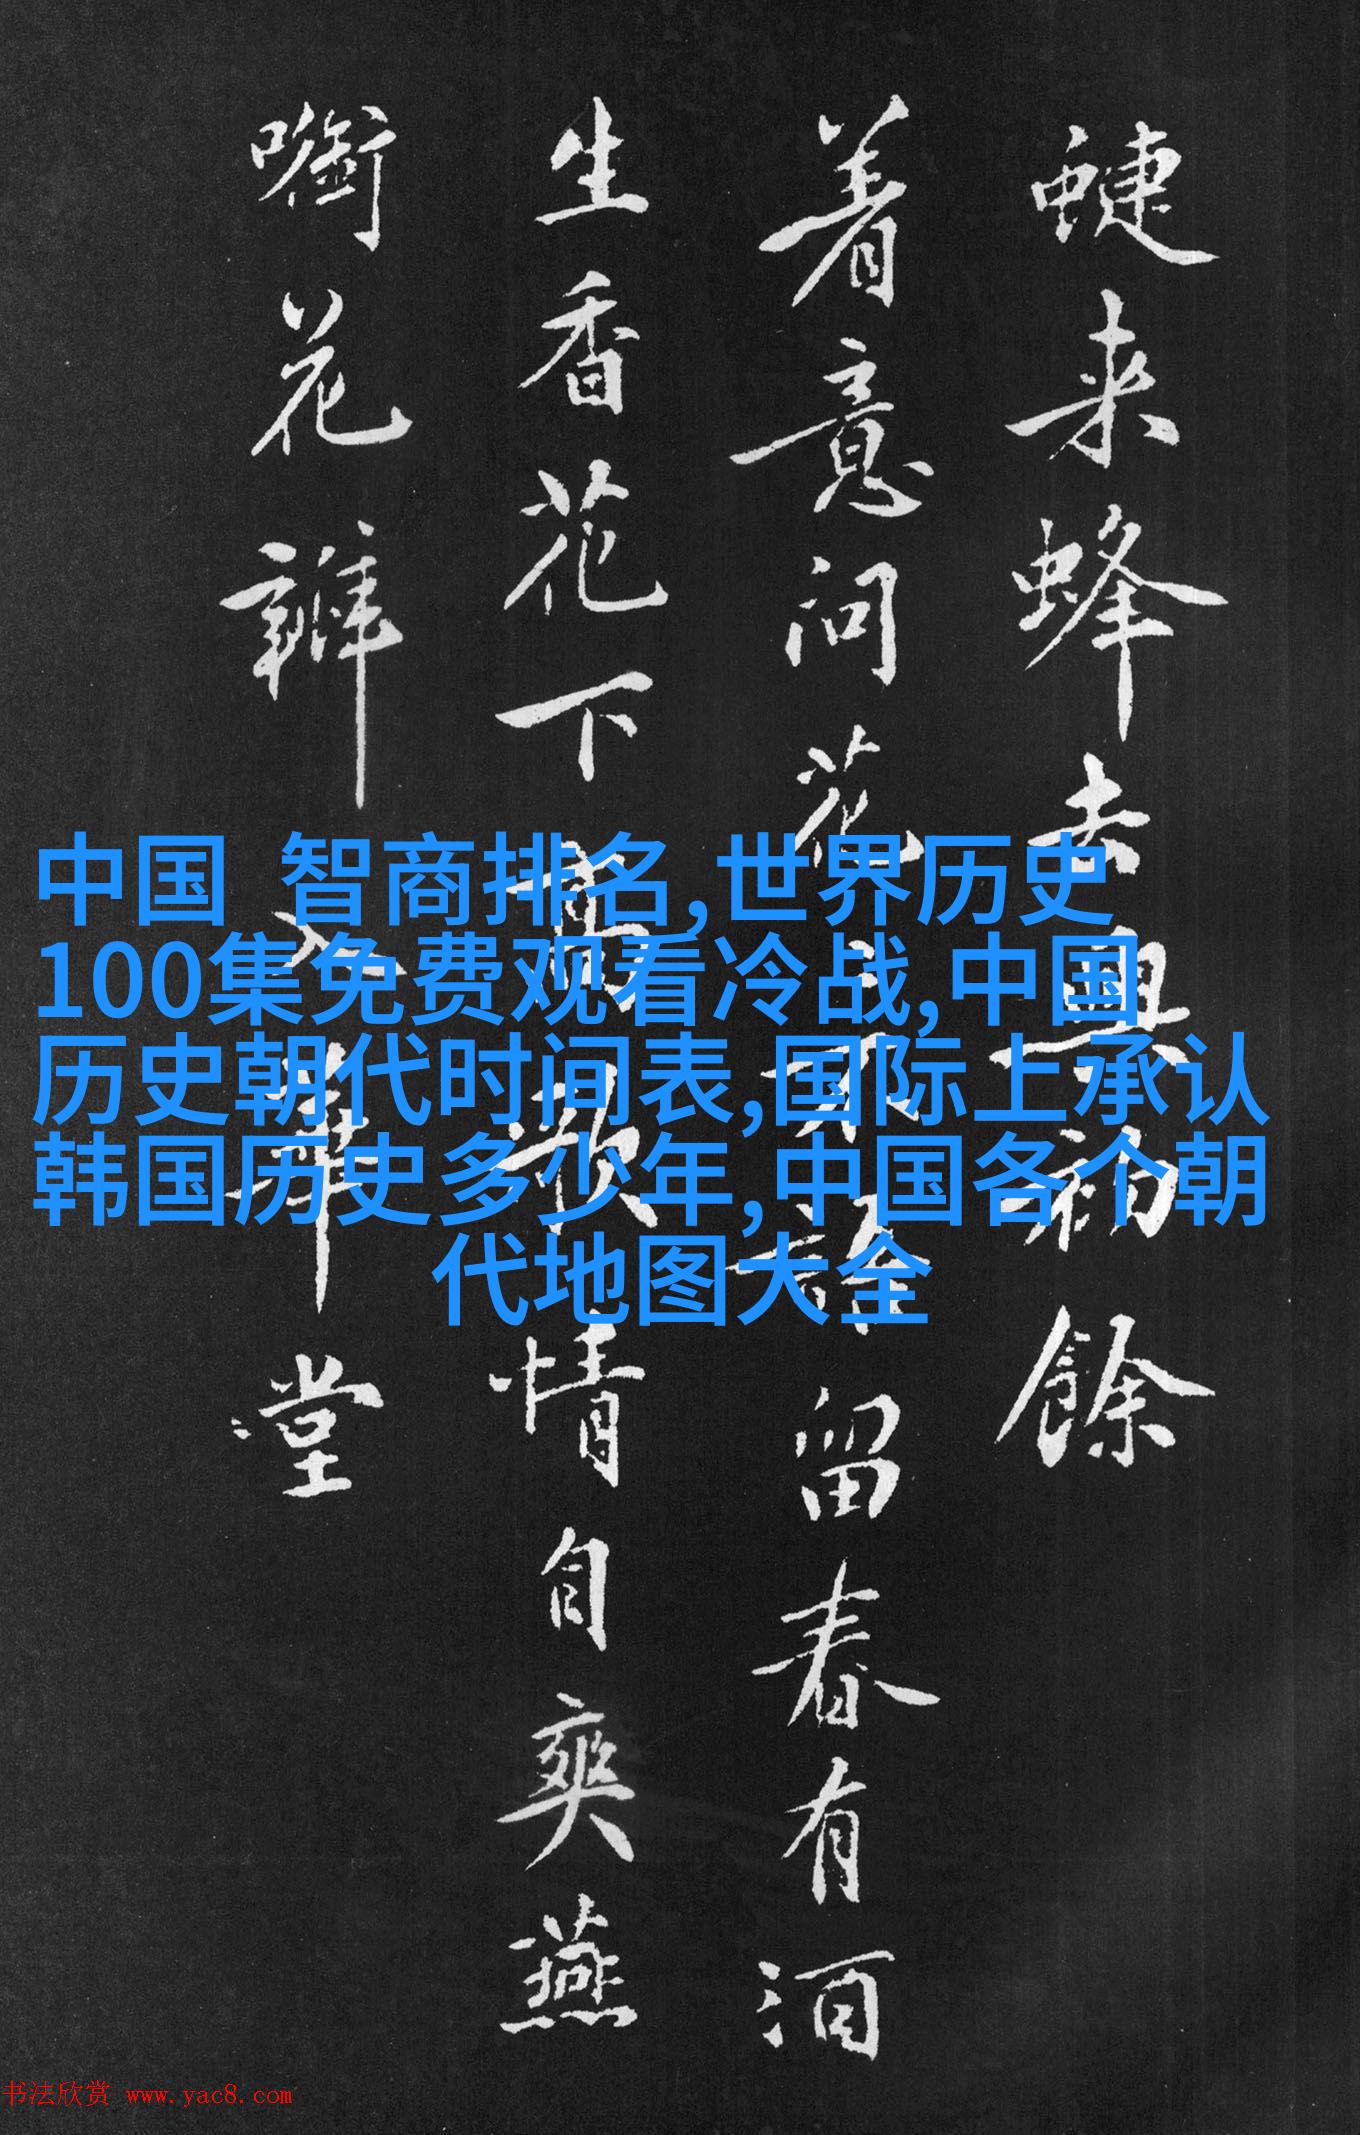 蜨来蜂去興初餘
着意问花不語留春有酒
生香花下高歌情自爽燕
花瓣入華堂
中国 智商排名,世界历史
100集免费观看冷战,中国
历史朝代时间表,国际上承认
韩国历史多少年,中国各个朝
代地图大全
书法欣赏 www.yac8.com